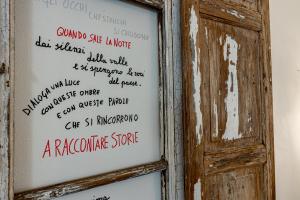 OCCHI
CHE STANCHI
SI CHIUDONO
QUANDO SALE LA NOTTE
dai silenzi della valle
e si spengono le voci
del paese.
DIALOGA UNA LUCE
CON QUESTE OMBRE
E CON QUESTE PAROLE
CHE SI RINCORRONO
A RACCONTARE STORIE